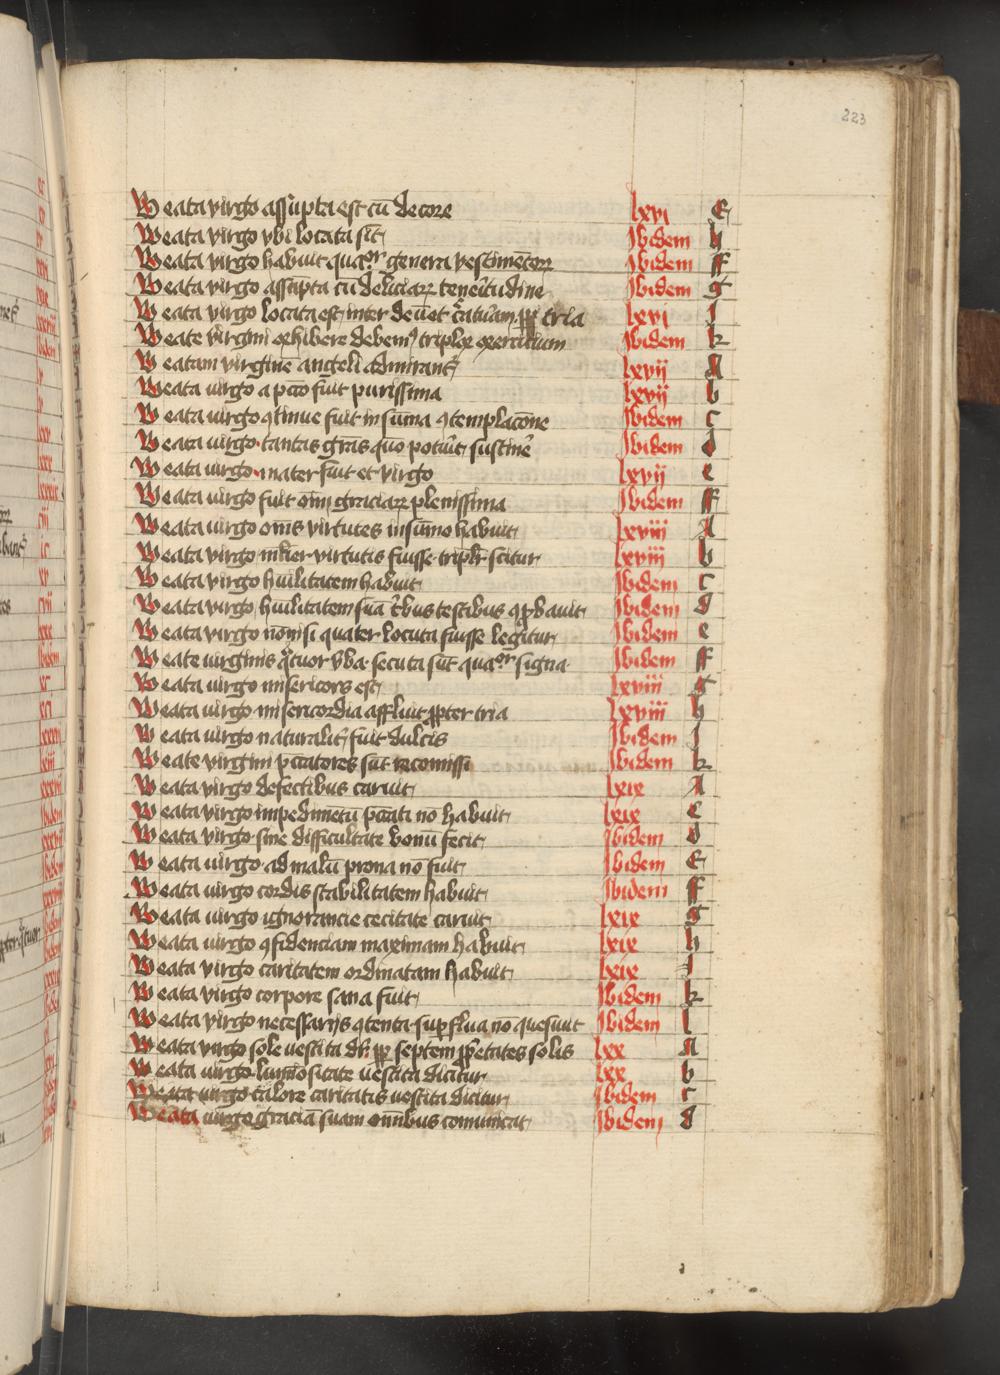 223
Beata virgo assūpta est cū decore lxvi E
Beata virgo vbi locata sit Ibidem h
Beata virgo habuit quaor genera vestimētorꝝ Ibidem ff
Beata virgo assūpta cū deliciarꝝ Ibidem g
Beata virgo locata est inter deū et tria lxvi I
Beate virgini exhibere debemꝰ triplex exercitium Ibidem k
Beatam virginē angeli admirant᷑ lxvii A
Beata virgo a pctō fuit purissima lxvii b
Beata virgo ꝯtinue fuit in sūma ꝯtemplacōne Ibidem c
Beata virgo tantas grās quō potuit sustinē Ibidem d
Beata virgo mater fuit et virgo lxvii e
Beata virgo fuit oīm graciarꝝ plenissima Ibidem ff
Beata virgo oīns virtutes in sūmo habuit lxviii A
Beata virgo mlier virtutis fuisse triplr scitur lxviii b
Beata virgo hūilitatem habuit Ibidem c
Beata virgo hūilitatem suā tribus testibus ꝯꝓbauit Ibidem d
Beata virgo nō nisi quater locuta fuisse legitur Ibidem e
Beate virginis qtuor vba secuta sūt quaor signa Ibidem ff
Beata virgo misericors est lxviii g
Beata virgo misericordia affluit ꝓpter tria lxviii h
Beata virgo naturalit᷑ fuit dulcis Ibidem I
Beate virgini pctatores sūt recomissi Ibidem k
Beata virgo defectibus caruit lxix A
Beata virgo impedimētū pctati nō habuit lxix c
Beata virgo sine difficultate bonū fecit Ibidem d
Beata virgo ad malū prona nō fuit Ibidem E
Beata virgo cordis stabilitatem habuit Ibidem ff
Beata virgo ignorancie cecitate caruit lxix g
Beata virgo ꝯfidenciam maximam habuit lxix h
Beata virgo caritatem ordinatam habuit lxix I
Beata virgo corpore sana fuit Ibidem k
Beata virgo necessarijs ꝯtenta suꝑflua nō quesiuit Ibidem l
Beata virgo sole vestita dr ꝓpꝑ septem ꝓpetates solis lxx A
Beata virgo luminositate vestita dicitur lxx b
Beata virgo calore caritatis vestita dicitur Ibidem c
Beata virgo graciā suam omnibus comunicat Ibidem d